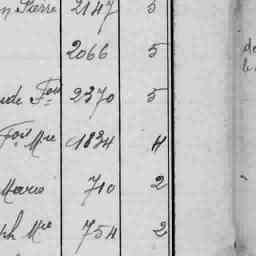 n Pierre 2147 5
2066 5
ude Fois 2370 5
Fois Mie 1834 4
Marie 710 2
ph Mie 754 2